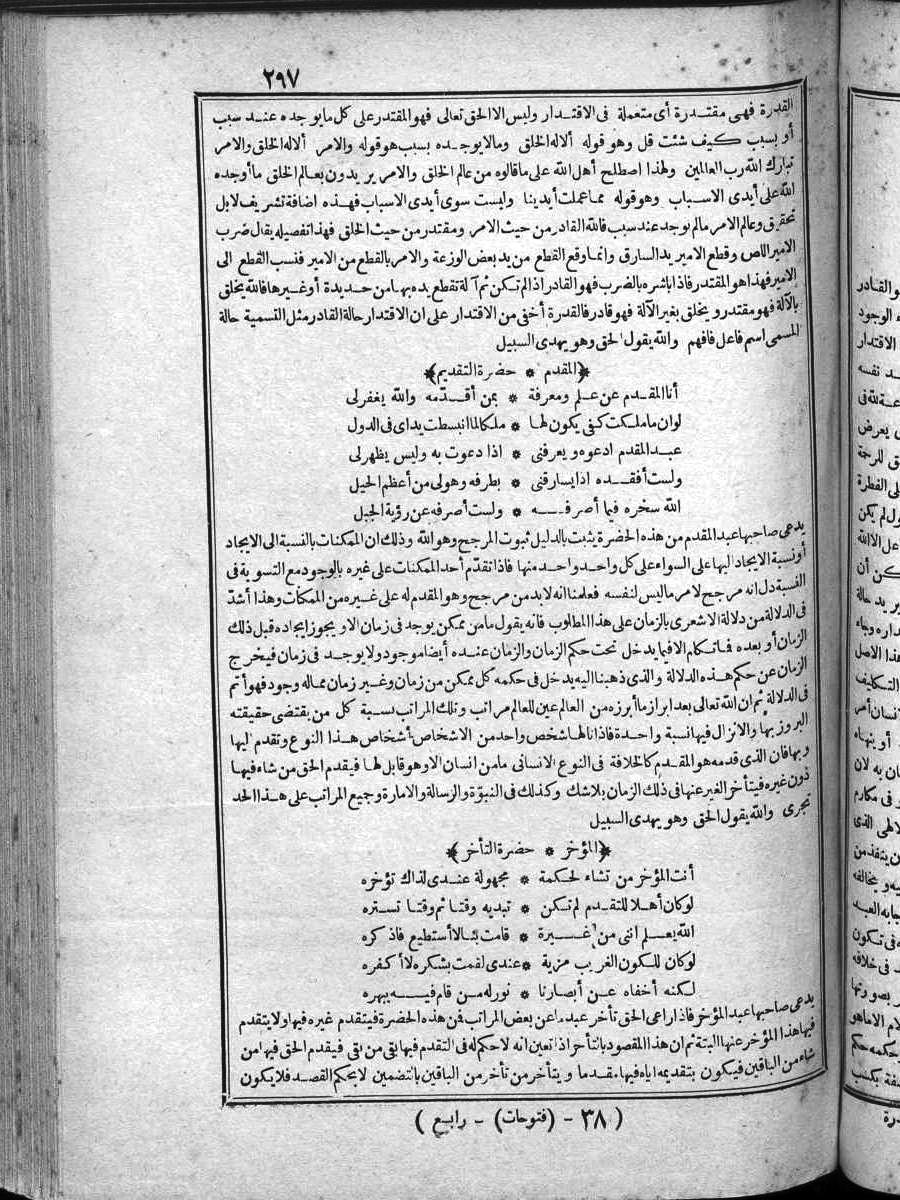 ٢٩٧
القدرة فهى مقتدرة أى متعملة فى الاقتدار وليس الا الحق تعالى فهو المقتدر على كل ما يوجده عند سبب
أو بسبب كيف شئت قل وهو قوله ألا له الخلق وما لا يوجده بسبب هو قوله والامر ألا له الخلق والامر
تبارك الله رب العالمين ولهذا اصطلح أهل الله على ما قالوه من عالم الخلق والامر يريدون بعالم الخلق ما أوجده
الله على أيدى الاسباب وهو قوله مما عملت أيدينا وليست سوى أيدى الاسباب فهذه اضافة تشريف لا بل
تحقيق وعالم الامر ما لم يوجد عند سبب فالله القادر من حيث الامر ومقتدر من حيث الخلق فهذا تفصيله يقال ضرب
الامير اللص وقطع الامير يد السارق وانما وقع القطع من يد بعض الوزعة والامر بالقطع من الامير فنسب القطع الى
الامير فهذا هو المقتدر فاذا باشره بالضرب فهو القادر اذا لم تكن ثم آلة تقطع يده بها من حديدة أو غيرها فالله يخلق
بالآلة فهو مقتدر ويخلق بغير الآلة فهو قادر فالقدرة أخفى من الاقتدار على ان الاقتدار حالة القادر مثل التسمية حالة
المسمى اسم فاعل فافهم والله يقول الحق وهو يهدى السبيل
﴿المقدم * حضرة التقديم﴾
أنا المقدم عن علم ومعرفة * بمن أقدّمه والله يغفر لى
لو ان ما ملكت كفى يكون لها * ملكا لما انبسطت يداى فى الدول
عبد المقدم ادعوه ويعرفنى * اذا دعوت به وليس يظهر لى
ولست أفقده اذ يسارقنى * بطرفه وهو لى من أعظم الحيل
الله سخره فيما أصرفه * ولست أصرفه عن رؤية الجبل
يدعى صاحبها عبد المقدم من هذه الحضرة يثبت بالدليل ثبوت المرجح وهو الله وذلك ان الممكنات بالنسبة الى الايجاد
أو نسبة الايجاد اليها على السواء على كل واحد واحد منها فاذا تقدّم أحد الممكنات على غيره بالوجود مع التسوية فى
النسبة دل انه مرجح لامر ما ليس لنفسه فعلمنا انه لا بد من مرجح وهو المقدم له على غيره من الممكنات وهذا أشدّ
فى الدلالة من دلالة الاشعرى بالزمان على هذا المطلوب فانه يقول ما من ممكن يوجد فى زمان الا ويجوز ايجاده قبل ذلك
الزمان أو بعده فما تكلم الا فيما يدخل تحت حكم الزمان والزمان عنده أيضا موجود ولا يوجد فى زمان فيخرج
الزمان عن حكم هذه الدلالة والذى ذهبنا اليه يدخل فى حكمه كل ممكن من زمان وغير زمان مما له وجود فهو أتم
فى الدلالة ثم ان الله تعالى بعد ابراز ما أبرزه من العالم عين للعالم مراتب وتلك المراتب نسبة كل من يقتضى حقيقته
البروز بها والانزال فيها نسبة واحدة فاذا نالها شخص واحد من الاشخاص أشخاص هذا النوع وتقدم اليها
وبها فان الذى قدمه هو المقدم كالخلافة فى النوع الانسانى ما من انسان الا وهو قابل لها فيقدم الحق من شاء فيها
دون غيره فيتأخر الغير عنها فى ذلك الزمان بلا شك وكذلك فى النبوّة والرسالة والامارة وجميع المراتب على هذا الحد
تجرى والله يقول الحق وهو يهدى السبيل
﴿المؤخر * حضرة التأخر﴾
أنت المؤخر من تشاء لحكمة * مجهولة عندى لذاك تؤخره
لو كان أهلا للتقدم لم تكن * تبديه وقتا ثم وقتا تستره
الله يعلم اننى من غيرة * قامت بنا لا أستطيع فاذكره
لو كان للكون الغريب مزية * عندى لقمت بشكره لا أكفره
لكنه أخفاه عن أبصارنا * نور له من قام فيه يبهره
يدعى صاحبها عبد المؤخر فاذا راعى الحق تأخر عبد ما عن بعض المراتب فمن هذه الحضرة فيتقدم غيره فيها ولا يتقدم
فيها هذا المؤخر عنها البتة ثم ان هذا المقصود بالتأخر اذا تعين انه لا حكم له فى التقدم فيها بقى من بقى فيقدم الحق فيها من
شاء من الباقين فيكون بتقديمه اياه فيها مقدما ويتأخر من تأخر من الباقين بالتضمين لا بحكم القصد فلا يكون
( ٣٨ - (فتوحات) - رابع )